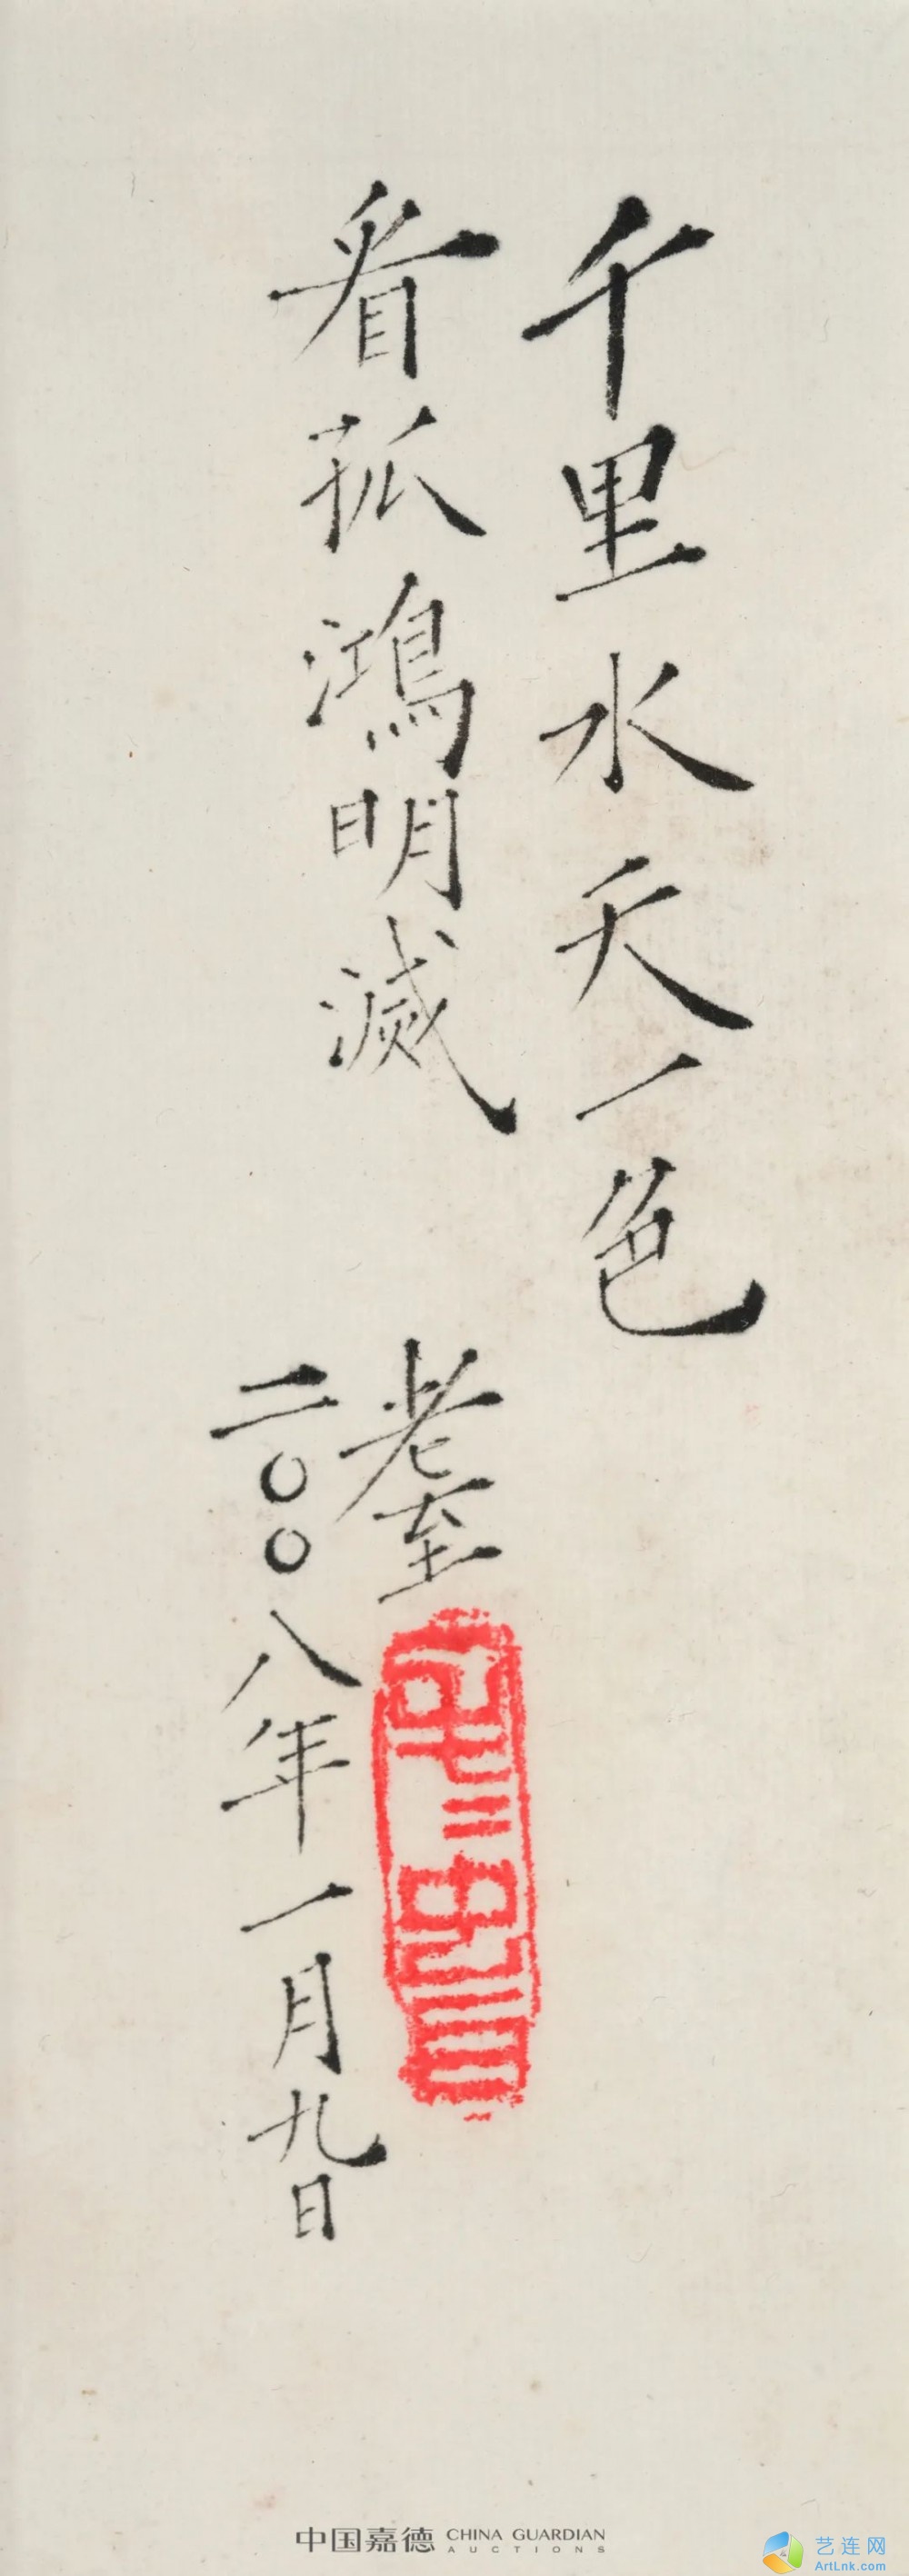 千里水天一色
看孤鴻明滅
耋
二〇〇八年一月九日
中国嘉德 CHINA GUARDIAN
AUCTIONS
艺连网
ArtLnk.com